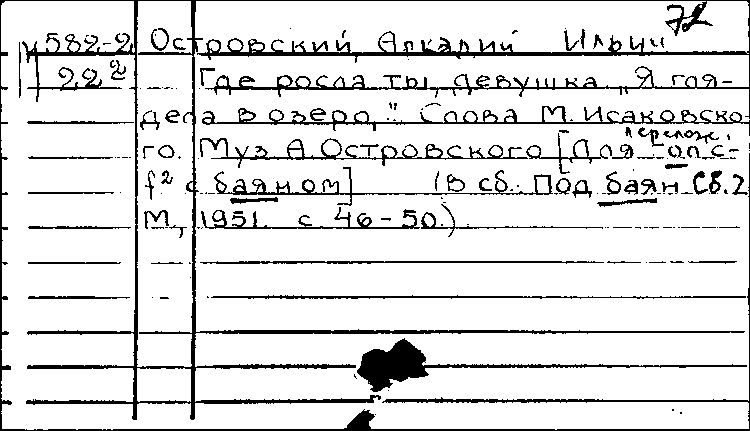 72
582-2 Островский, Аркадий Ильич
22² Где росла ты, девушка. „Я гля-
дела в озеро,“ Слова М. Исаковско-
го. Муз. А. Островского [Для голс-
перелож.
f² с баяном] (В сб. Под баян Сб. 2
М., 1951. с. 46-50.)